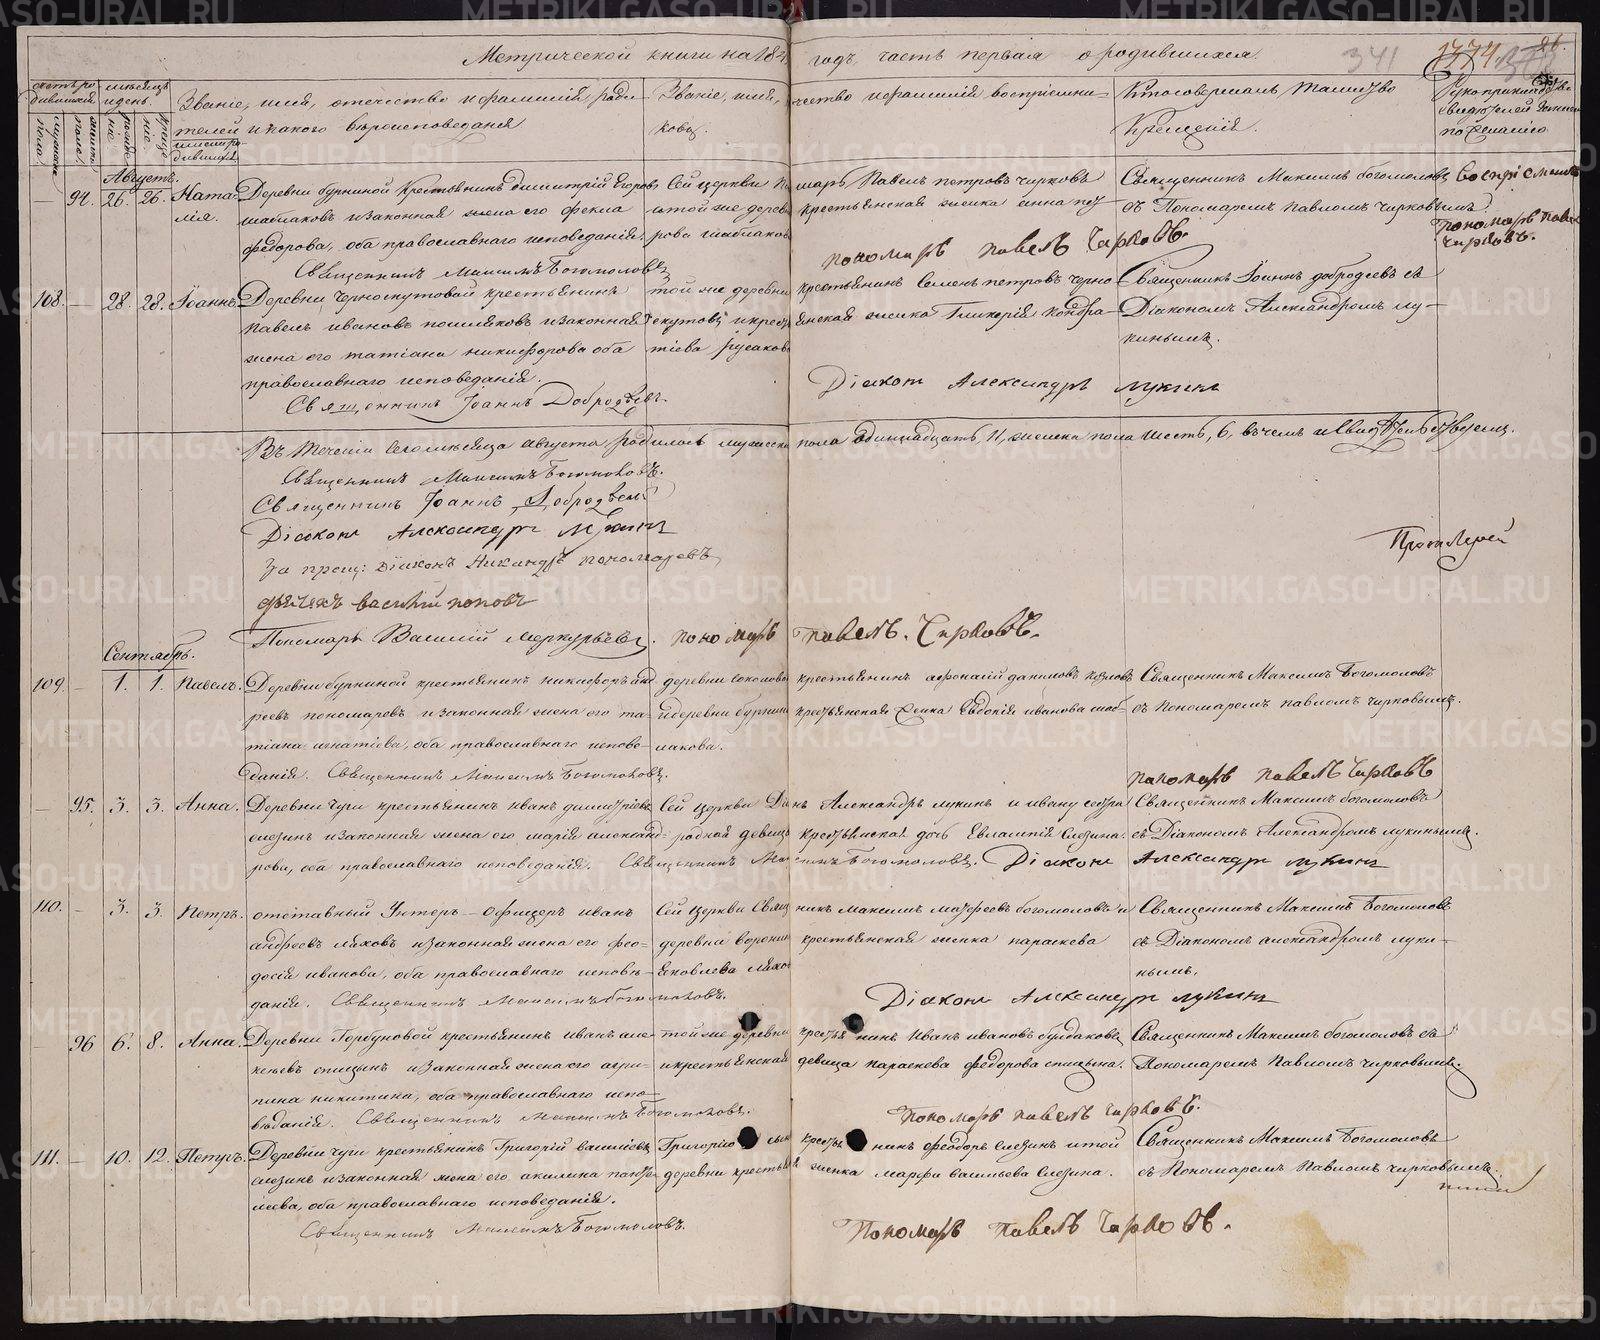 Метрической книги на 184 годъ, часть первая о родившихся.
341 1774
счетъ родившихся
мѣсяцъ и день
Званіе, имя, отечество и фамилія роди-
телей и какого вѣроисповеданія
Званіе, имя, чество и фамилія воспріемни-
ковъ.
Кто совершалъ таинство
Крещенія.
Августъ.
94. 26. 26. Ната-
лія.
Деревни бурниной крестьянинъ димитрій Егоровъ
и законная жена его фекла
федорова, оба православнаго исповеданія.
Священникъ Максимъ Богомоловъ
Сей церкви марь Павелъ петровъ чирковъ
и той же дерев крестьянская женка анна пет
рова
пономарь павелъ Чирковъ.
Священникъ Максимъ богомоловъ
съ Пономаремъ Павломъ чирковымъ.
пономарь павел
чирковъ.
108. 28. 28. Іоаннъ.
Деревни черноскутовой крестьянинъ
павелъ ивановъ и законная
жена его татіана никифорова оба
православнаго исповеданія.
Священникъ Іоаннъ Добродѣевъ.
той же деревни крестьянинъ Семенъ петровъ черно
скутовъ и крестьянская женка Гликерія кондра-
тіева русаков
Діаконъ Александръ лукинъ
Священникъ Іоаннъ добродеевъ съ
Діакономъ Александромъ лу-
кинымъ.
Въ теченіи сего месяца августа родилось мужеска пола одиннадцать, 11, женска пола шесть, 6. въ чемъ и свидѣтельствуемъ.
Священникъ Максимъ Богомоловъ.
Священникъ Іоаннъ Добродѣевъ
Діаконъ Александръ лукинъ
Діаконъ Никандръ пономаревъ
дьячекъ василій поповъ
Пономарь Василій Меркурьевъ. пономарь павелъ. Чирковъ.
Протоіерей
Сентябрь.
109. 1. 1. Павелъ.
Деревни бурниной крестьянинъ никифоръ анд
реевъ пономаревъ и законная жена его та-
тіана игнатіева, оба православнаго испове-
данія. Священникъ Максимъ Богомоловъ.
деревни соколово крестьянинъ афонасій даниловъ козловъ
и деревни бурнин крестьянская женка Евдокія иванова шаб-
лакова.
Священникъ Максимъ Богомоловъ
съ пономаремъ павломъ чирковымъ.
пономарь павелъ Чирковъ
95. 3. 3. Анна.
Деревни чуги крестьянинъ иванъ димитріевъ
слезинъ и законная жена его марія александ-
рова, оба православнаго исповеданія. Священникъ Максимъ Богомоловъ.
Сей церкви Діаконъ Александръ лукинъ и
родная девица крестьянская дочь Евлампія слезина.
Діаконъ Александръ лукинъ
Священникъ Максимъ богомоловъ
съ Діакономъ Александромъ лукинымъ.
110. 3. 3. Петръ.
отставный Унтеръ-Офицеръ иванъ
андреевъ ляховъ и законная жена его фео-
досія иванова, оба православнаго исповѣ-
данія. Священникъ Максимъ богомоловъ.
Сей церкви Священникъ максимъ матфеевъ богомоловъ и
деревни воронин крестьянская женка параскева
Яковлева ляхо
Діаконъ Александръ лукинъ
Священникъ Максимъ Богомоловъ
съ Діакономъ александромъ луки-
нымъ.
96 6. 8. Анна.
Деревни Горбуновой крестьянинъ иванъ але-
ксѣевъ спицынъ и законная жена его агри-
пина никитина, оба православнаго испо-
вѣданія. Священникъ Максимъ Богомоловъ.
той же деревни крестьянинъ Иванъ ивановъ булдаковъ
и крестьянская девица параскева федорова спицына.
пономарь павелъ чирковъ.
Священникъ Максимъ богомоловъ съ
Пономаремъ Павломъ чирковымъ.
111. 10. 12. Петръ.
Деревни чуги крестьянинъ Григорій василіевъ
слезинъ и законная жена его акилина панфи-
лиева, оба православнаго исповеданія.
Священникъ Максимъ Богомоловъ.
крестьянинъ феодоръ слезинъ и той
деревни крестьян женка марфа васильева слезина.
Пономарь павелъ Чирковъ.
Священникъ Максимъ Богомоловъ
съ Пономаремъ Павломъ чирковымъ.
METRIKI.GASO-URAL.RU